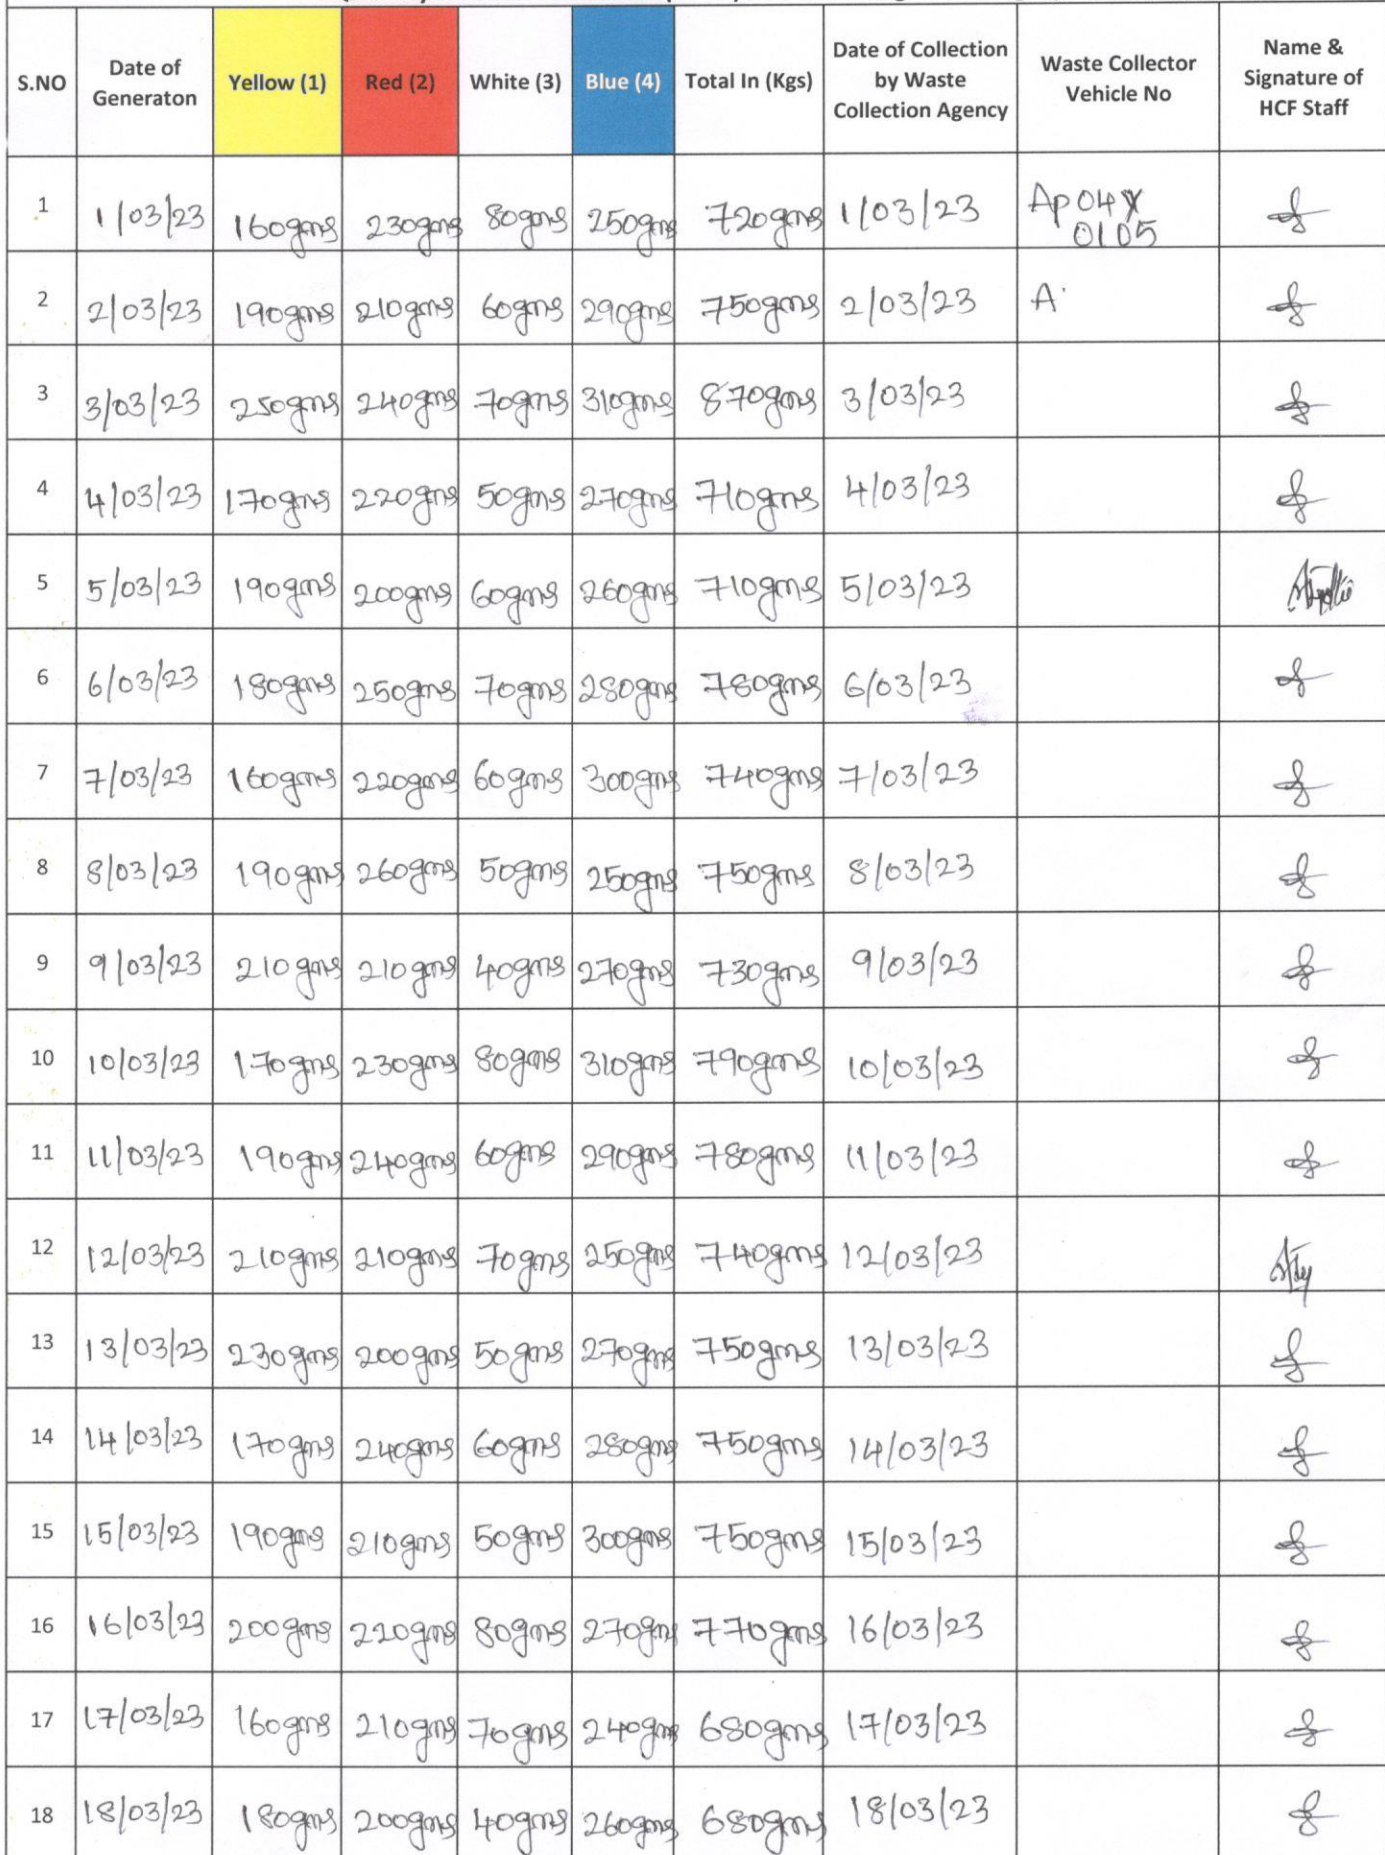 S.NO Date of Generaton Yellow (1) Red (2) White (3) Blue (4) Total In (Kgs) Date of Collection by Waste Collection Agency Waste Collector Vehicle No Name & Signature of HCF Staff
1 1/03/23 160gms 230gms 80gms 250gms 720gms 1/03/23 Ap04X 0105
2 2/03/23 190gms 210gms 60gms 290gms 750gms 2/03/23 A
3 3/03/23 250gms 240gms 70gms 310gms 870gms 3/03/23
4 4/03/23 170gms 220gms 50gms 270gms 710gms 4/03/23
5 5/03/23 190gms 200gms 60gms 260gms 710gms 5/03/23
6 6/03/23 180gms 250gms 70gms 280gms 780gms 6/03/23
7 7/03/23 160gms 220gms 60gms 300gms 740gms 7/03/23
8 8/03/23 190gms 260gms 50gms 250gms 750gms 8/03/23
9 9/03/23 210gms 210gms 40gms 270gms 730gms 9/03/23
10 10/03/23 170gms 230gms 80gms 310gms 790gms 10/03/23
11 11/03/23 190gms 240gms 60gms 290gms 780gms 11/03/23
12 12/03/23 210gms 210gms 70gms 250gms 740gms 12/03/23
13 13/03/23 230gms 200gms 50gms 270gms 750gms 13/03/23
14 14/03/23 170gms 240gms 60gms 280gms 750gms 14/03/23
15 15/03/23 190gms 210gms 50gms 300gms 750gms 15/03/23
16 16/03/23 200gms 220gms 80gms 270gms 770gms 16/03/23
17 17/03/23 160gms 210gms 70gms 240gms 680gms 17/03/23
18 18/03/23 180gms 200gms 40gms 260gms 680gms 18/03/23